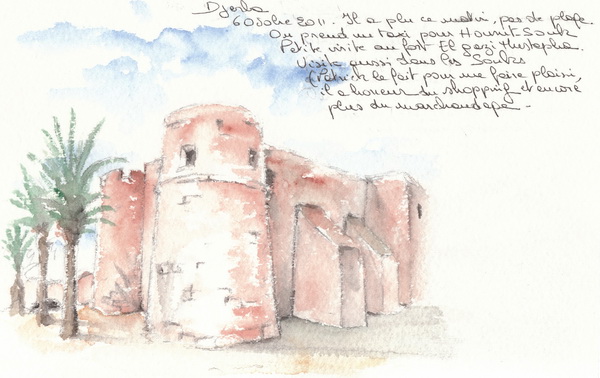 Djerba
6 Octobre 2011. Il a plu ce matin, pas de plage.
On prend un taxi pour Houmt Souk
Petite visite au fort El gazi Mustapha.
Visite aussi dans les Souks
(Patrick le fait pour me faire plaisir,
il a horreur du shopping et encore
plus du marchandage -